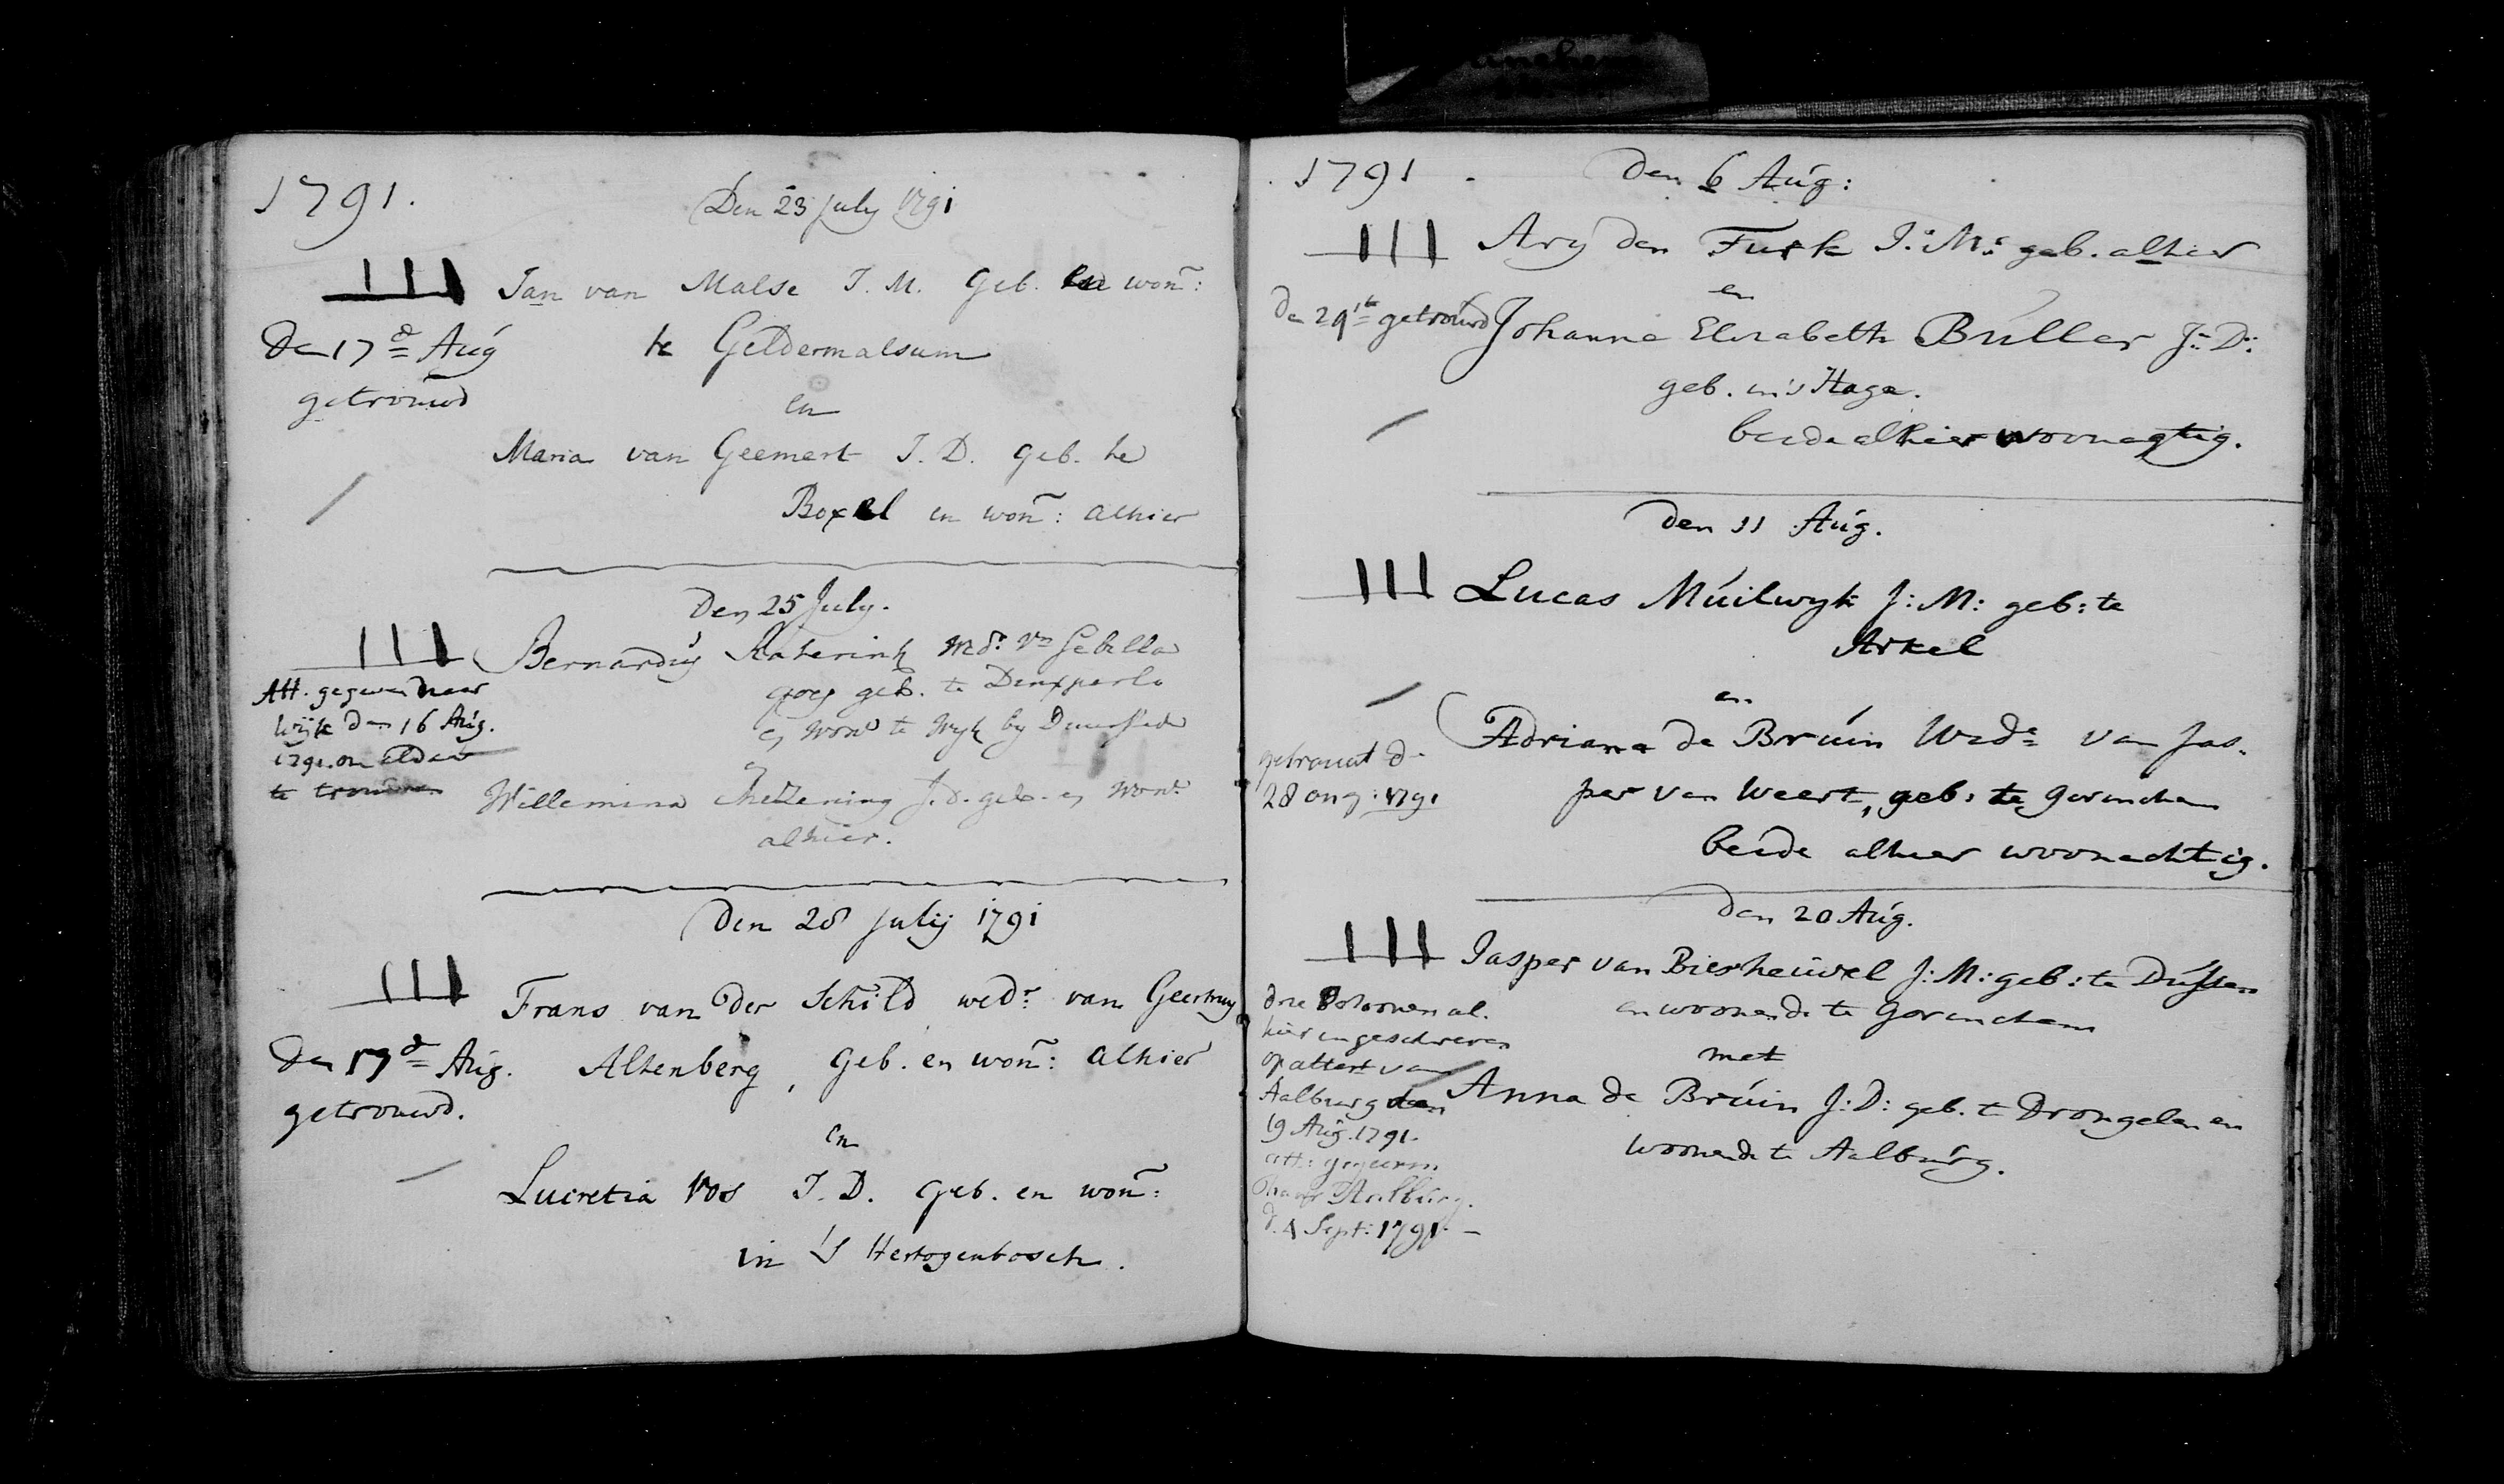 1791.
Den 23 July 1791
Jan van Malse J. M. Geb. en won:
te Geldermalsum
en
Maria van Geemert J. D. Geb. te
Boxtel en won: alhier
Den 17d Aug
getrouwd
Den 25 July.
Bernardus wedr. vn
geb. te Dinxperlo
en wond te Wyk by
en
Willemina J. d. geb. en wond
alhier.
Att. gegeven naar
Wijk den 16 Aug.
1791. om aldaar
te trouwen
Den 28 July 1791
Frans van der Schild wedr. van Geertruy
Altenberg, Geb. en won: alhier
en
Lucretia Vos J. D. Geb. en won:
in 's Hertogenbosch.
Den 17d Aug.
getrouwd.
1791.
Den 6 Aug:
Ary den Turk J: M: geb. alhier
en
Johanna Elizabeth Buller J: D:
geb. in 's Hage.
beide alhier woonagtig.
De 29ste getrouwd
Den 11 Aug.
Lucas Muilwyk J: M: geb: te
Arkel
en
Adriana de Bruin Wede van Jas-
per van Weert, geb: te Gorinchem
beide alhier woonachtig.
getrouwt d
28 aug: 1791
Den 20 Aug.
Jasper van Bierheuvel J: M: geb: te Dussen
en woonende te Gorinchem
met
Anna de Bruin J: D: geb. te Drongelen en
woonende te Aalburg.
al-
hier ingeschreven
op attest van
Aalburg den
19 Aug. 1791.
att: gegeven
naar Aalburg.
d. 4 Sept: 1791. -